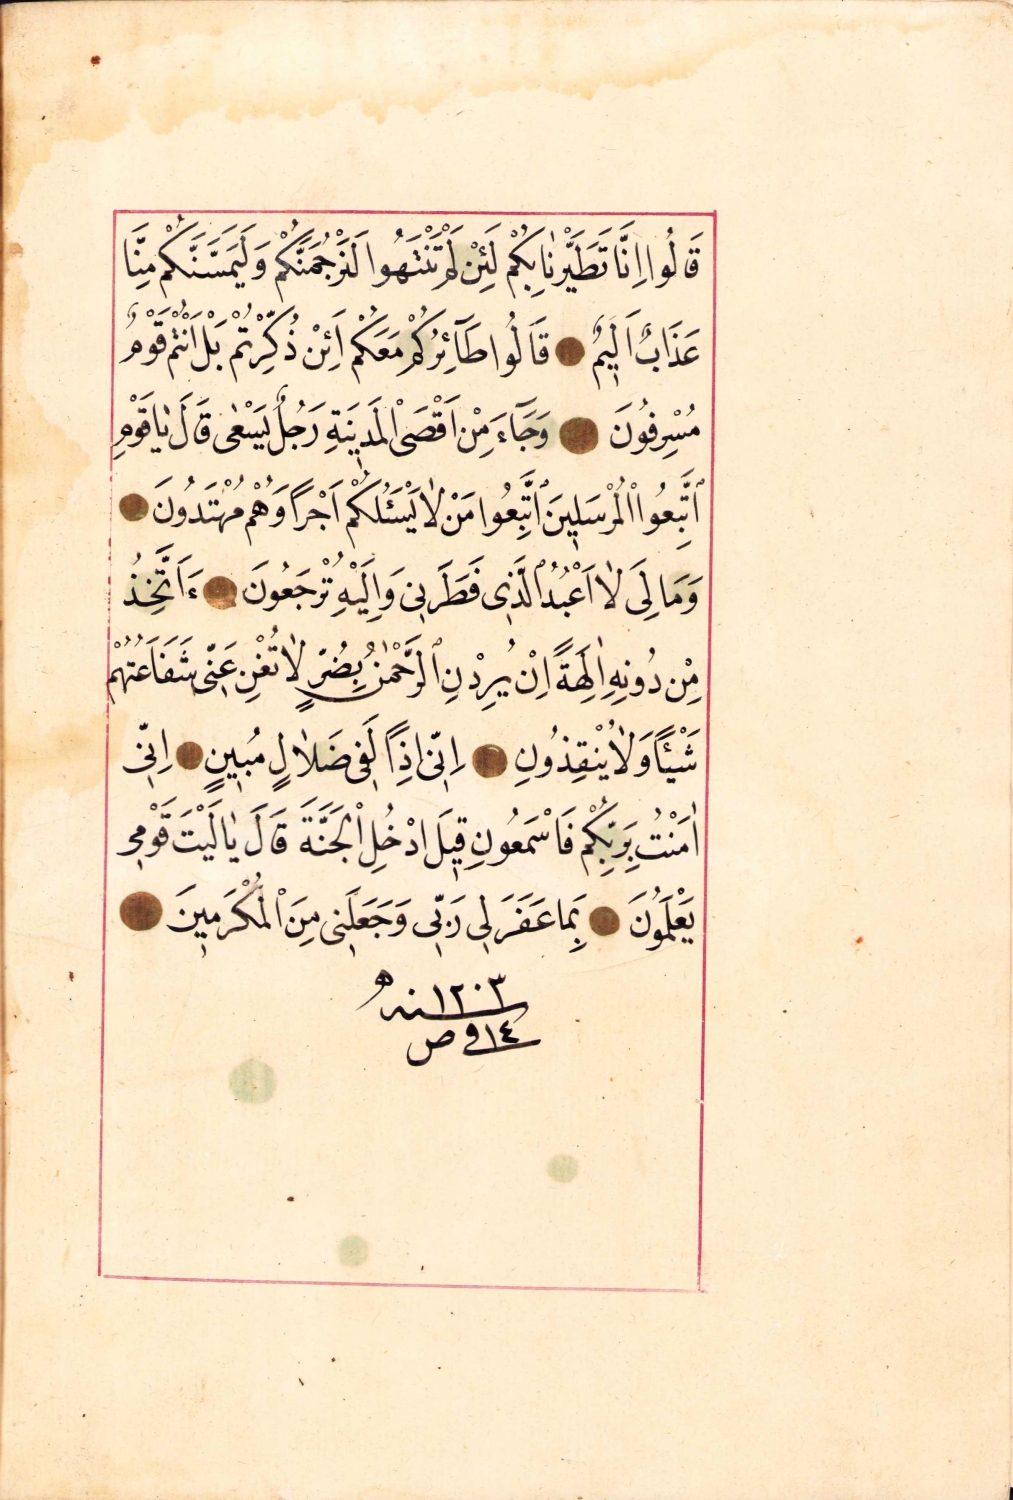 قَالُوا اِنَّا تَطَيَّرْنَا بِكُمْ لَئِنْ لَمْ تَنْتَهُوا لَنَرْجُمَنَّكُمْ وَلَيَمَسَّنَّكُمْ مِنَّا
عَذَابٌ اَلِيمٌ ● قَالُوا طَآئِرُكُمْ مَعَكُمْ اَئِنْ ذُكِّرْتُمْ بَلْ اَنْتُمْ قَوْمٌ
مُسْرِفُونَ ● وَجَآءَ مِنْ اَقْصَى الْمَدِينَةِ رَجُلٌ يَسْعٰى قَالَ يَاقَوْمِ
اتَّبِعُوا الْمُرْسَلِينَ اتَّبِعُوا مَنْ لَا يَسْئَلُكُمْ اَجْرًا وَهُمْ مُهْتَدُونَ ●
وَمَا لِيَ لَا اَعْبُدُ الَّذِى فَطَرَنِى وَاِلَيْهِ تُرْجَعُونَ ● ءَاَتَّخِذُ
مِنْ دُونِهِ اٰلِهَةً اِنْ يُرِدْنِ الرَّحْمٰنُ بِضُرٍّ لَا تُغْنِ عَنِّى شَفَاعَتُهُمْ
شَيْئًا وَلَا يُنْقِذُونِ ● اِنِّى اِذًا لَفِى ضَلَالٍ مُبِينٍ ● اِنِّى
اٰمَنْتُ بِرَبِّكُمْ فَاسْمَعُونِ قِيلَ ادْخُلِ الْجَنَّةَ قَالَ يَالَيْتَ قَوْمِى
يَعْلَمُونَ ● بِمَا غَفَرَ لِى رَبِّى وَجَعَلَنِى مِنَ الْمُكْرَمِينَ ●
سنه ١٢٠٣ ه
١٤ في ص